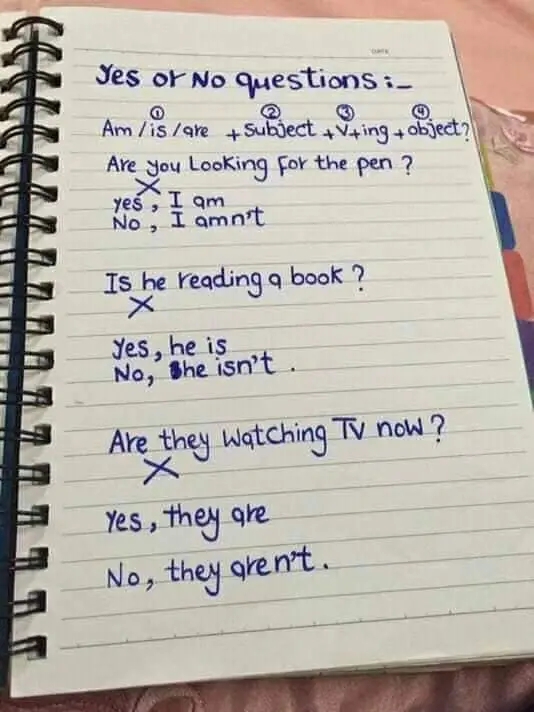 DATE
Yes or No questions :-
① ② ③ ④
Am / is / are + Subject + V + ing + object ?
Are you Looking for the pen ?
X
yes , I am
No , I amn't
Is he reading a book ?
X
Yes , he is
No, she isn't .
Are they watching TV now ?
X
Yes , they are
No , they aren't .